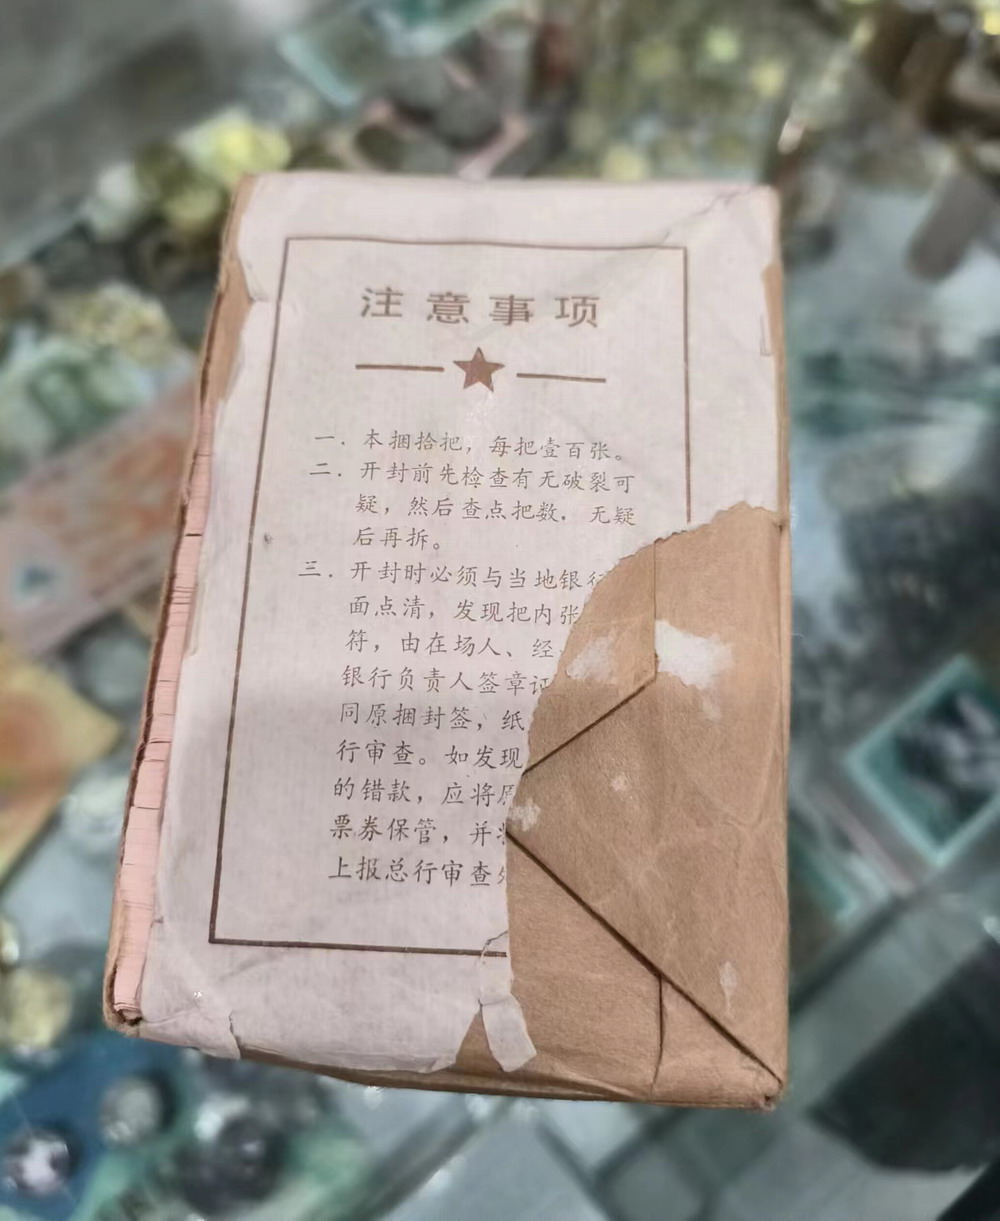 注意事项
一．本捆拾把，每把壹百张。
二．开封前先检查有无破裂可
疑，然后查点把数．无疑
后再拆。
三．开封时必须与当地银行
面点清，发现把内张
符，由在场人、经
银行负责人签章证
同原捆封签，纸
行审查。如发现
的错款，应将原
票券保管，并
上报总行审查